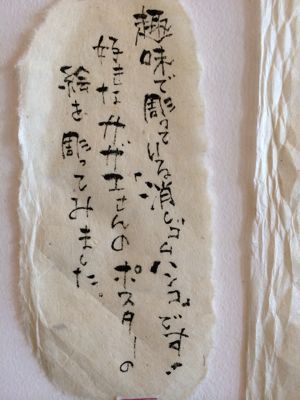 趣味で彫っている消しゴムハンコです!
好きなガガエさんのポスターの
絵を彫ってみました。